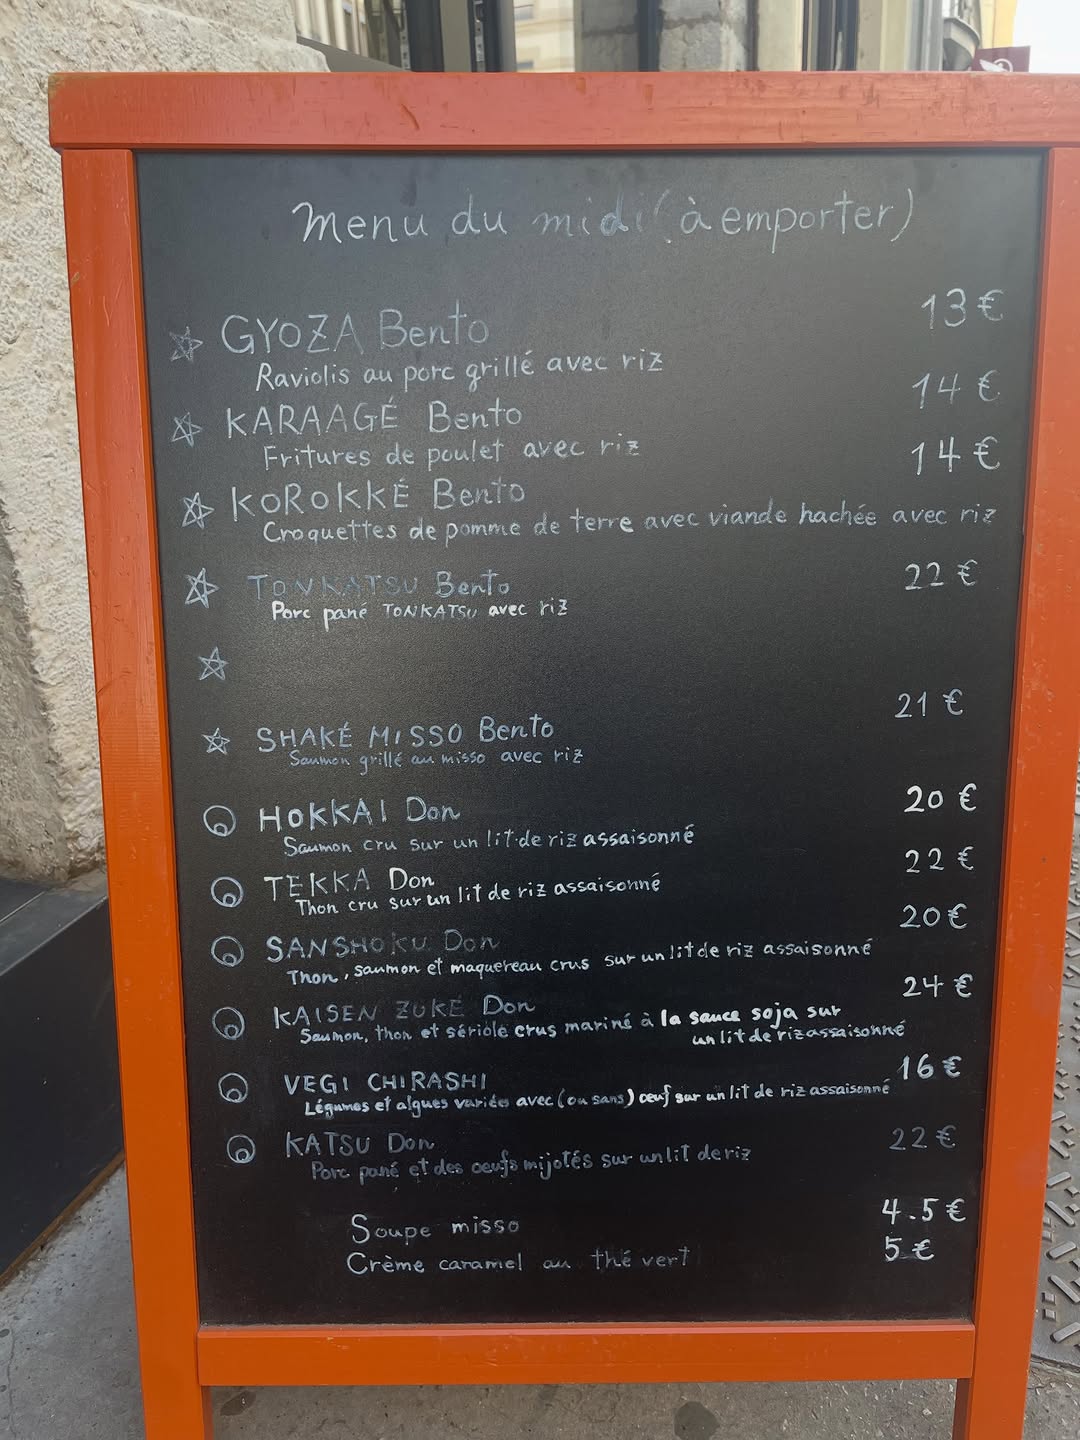 Menu du midi (à emporter)
GYOZA Bento 13 €
Raviolis au porc grillé avec riz
KARAAGÉ Bento 14 €
Fritures de poulet avec riz
KOROKKÉ Bento 14 €
Croquettes de pomme de terre avec viande hachée avec riz
TONKATSU Bento 22 €
Porc pané TONKATSU avec riz
SHAKÉ MISSO Bento 21 €
Saumon grillé au misso avec riz
HOKKAI Don 20 €
Saumon cru sur un lit de riz assaisonné
TEKKA Don 22 €
Thon cru sur un lit de riz assaisonné
SANSHOKU Don 20 €
Thon, saumon et maquereau crus sur un lit de riz assaisonné
KAISEN ZUKÉ Don 24 €
Saumon, thon et sériole crus mariné à la sauce soja sur
un lit de riz assaisonné
VEGI CHIRASHI 16 €
Légumes et algues variées avec (ou sans) œuf sur un lit de riz assaisonné
KATSU Don 22 €
Porc pané et des œufs mijotés sur un lit de riz
Soupe misso 4.5 €
Crème caramel au thé vert 5 €